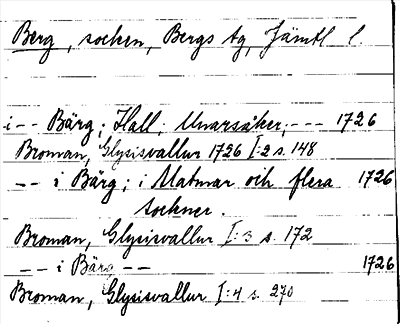 Berg, socken, Bergs tg, Jämtl l.
i -- Bärg; Hall; Unarsåker; --- 1726
Broman, Glysisvallur 1726 I:2 s. 148
-- i Bärg; i Matmar och flera 1726
sockner.
Broman, Glysisvallur I:3 s. 172
-- i Bärg -- 1726
Broman, Glysisvallur I:4 s. 270